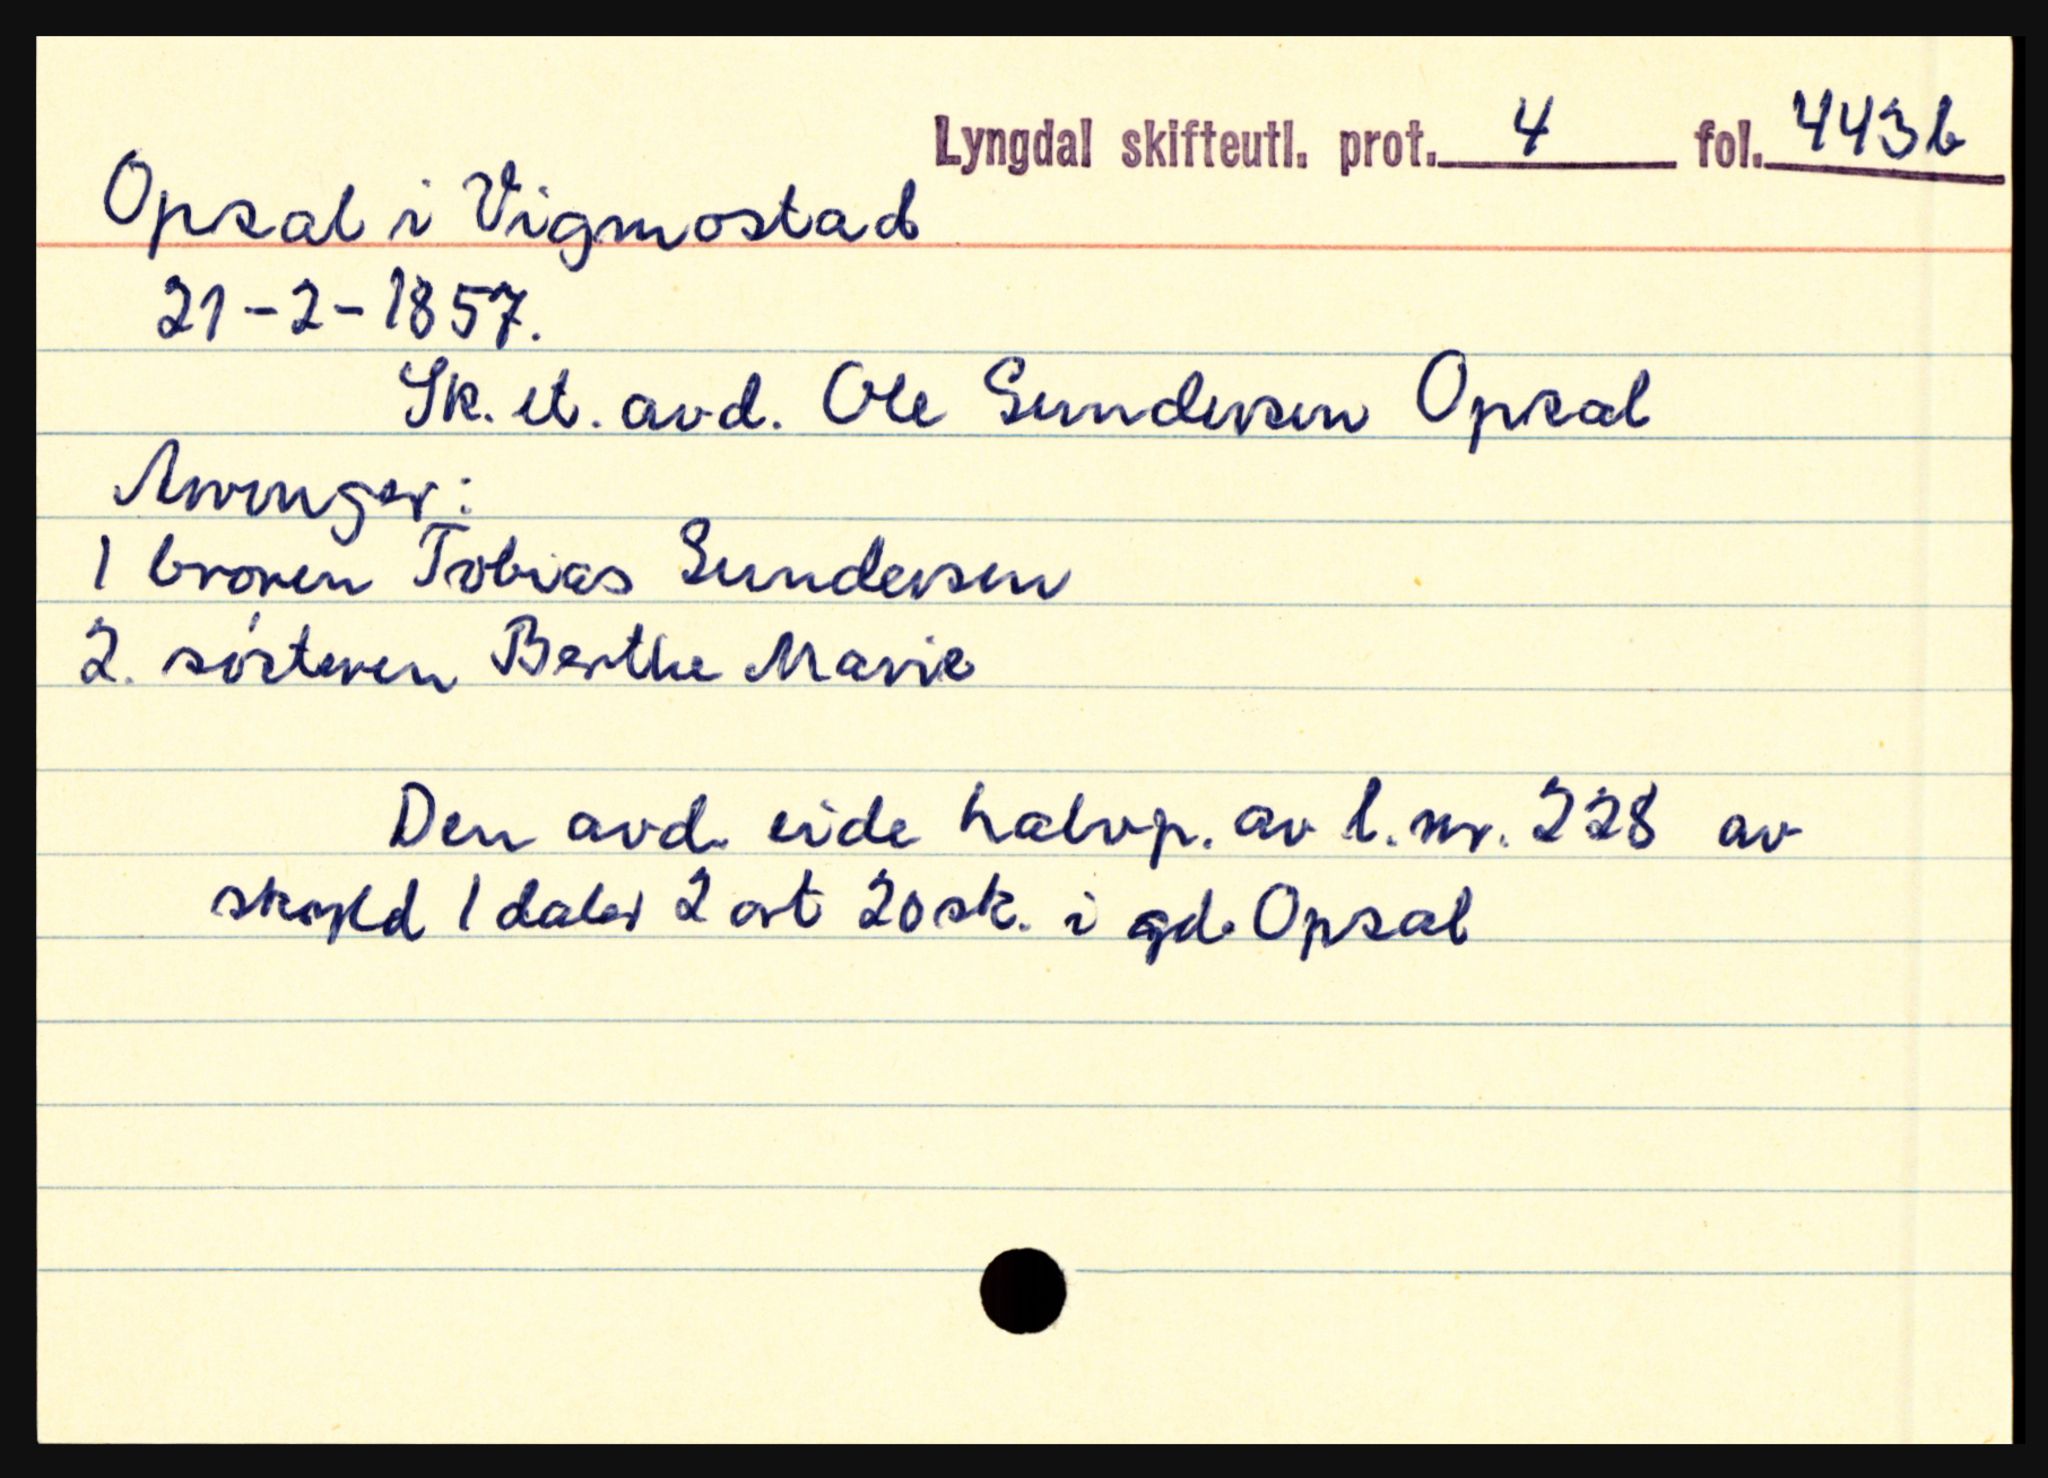 Lyngdal skifteutl. prot. 4 fol. 443b
Opsal i Vigmostad
21-2-1857.
Sk. et. avd. Ole Gundersen Opsal
Arvinger:
1 broren Tobias Gundersen
2. søsteren Berthe Marie
Den avd. eide halvp. av l.nr. 228 av
skyld 1 daler 2 ort 20 sk. i gd. Opsal